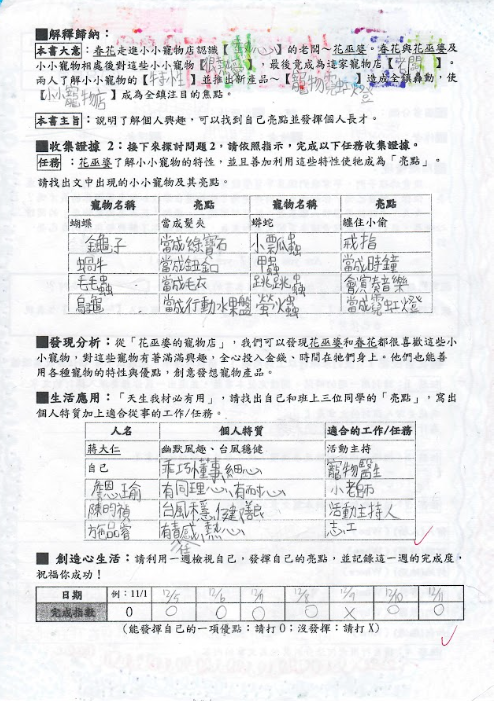 ■解釋歸納：
本書大意：春花走進小小寵物店認識【 心】的老闆～花巫婆。春花與花巫婆及
小小寵物相處後對這些小小寵物【很 】，最後竟成為這家寵物店【 】。
兩人了解小小寵物的【特性】並推出新產品～【寵物霓虹燈】造成全鎮轟動，使
【小小寵物店】成為全鎮注目的焦點。
本書主旨：說明了解個人興趣，可以找到自己亮點並發揮個人長才。
■收集證據 2：接下來探討問題2，請依照指示，完成以下任務收集證據。
任務：花巫婆了解小小寵物的特性，並且善加利用這些特性使牠成為「亮點」。
請找出文中出現的小小寵物及其亮點。
寵物名稱 亮點 寵物名稱 亮點
蝴蝶 當成髮夾 蟒蛇 纏住小偷
金龜子 當成綠寶石 小瓢蟲 戒指
蝸牛 當成鈕釦 甲蟲 當成時鐘
毛毛蟲 當成毛衣 跳跳蟲 會演奏音樂
烏龜 當成行動水果盤 螢火蟲 當成霓虹燈
■發現分析：從「花巫婆的寵物店」，我們可以發現花巫婆和春花都很喜歡這些小
小寵物，對這些寵物有著滿滿興趣，全心投入金錢、時間在牠們身上。他們也能善
用各種寵物的特性與優點，創意發想寵物產品。
■生活應用：「天生我材必有用」，請找出自己和班上三位同學的「亮點」，寫出
個人特質加上適合從事的工作/任務。
人名 個人特質 適合的工作/任務
蔣大仁 幽默風趣、台風穩健 活動主持
自己 乖巧懂事、細心 寵物醫生
詹恩瑜 有同理心、有耐心 小老師
陳昀禎 台風穩健、 活動主持人
方品睿 有責任感、熱心 志工
■ 創造心生活：請利用一週檢視自己，發揮自己的亮點，並記錄這一週的完成度，
祝福你成功！
日期 例：11/1 12/5 12/6 12/7 12/8 12/9 12/10 12/11
完成指數 O O O O O X O O
（能發揮自己的一項優點：請打 O；沒發揮：請打 X）